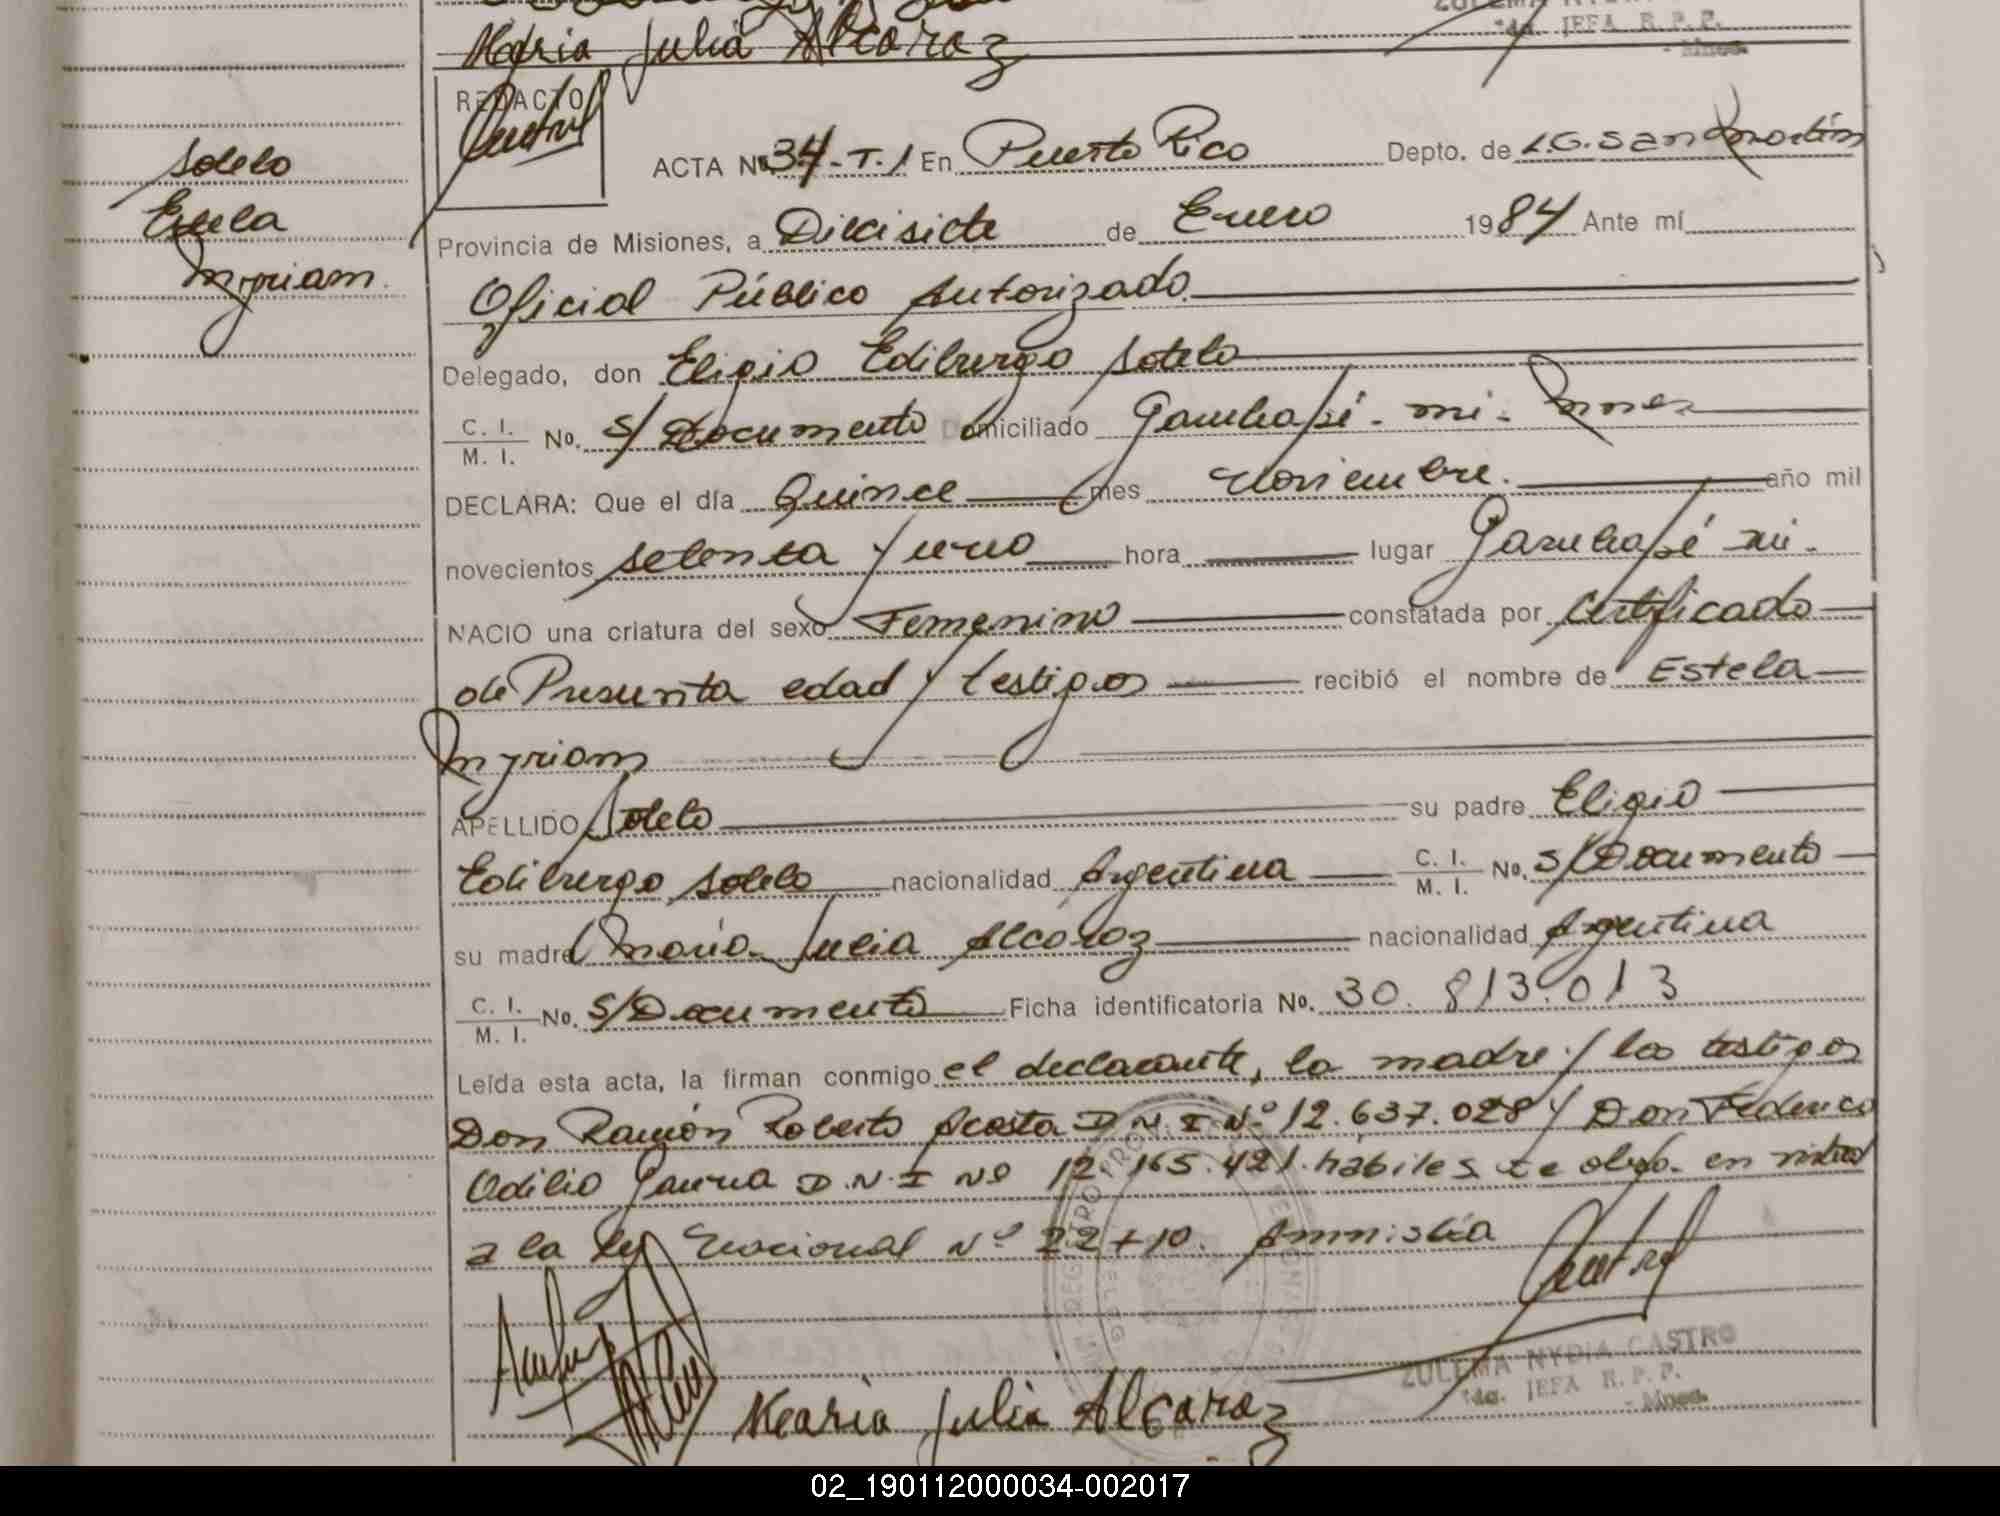 Maria Julia Alcaraz
ZULEMA NYDIA
2da. JEFA R. P. P.
- Mnes.
REDACTO
ACTA Nº 34-T.1 En Puerto Rico Depto. de L.G. San Martín
Sotelo
Estela
Myriam
Provincia de Misiones, a Diecisiete de Enero 1984 Ante mí
Oficial Público Autorizado
Delegado, don Eligio Edilburgo Sotelo
C. I. / M. I. No. S/Documento Domiciliado Garuhapé - mi - Mnes
DECLARA: Que el día Quince mes Noviembre. año mil
novecientos setenta y uno hora lugar Garuhapé mi.
NACIO una criatura del sexo Femenino constatada por Certificado
de Presunta edad y testigos recibió el nombre de Estela
Myriam
APELLIDO Sotelo su padre Eligio
Edilburgo Sotelo nacionalidad Argentina C. I. / M. I. No. S/Documento
su madre María Julia Alcaraz nacionalidad Argentina
C. I. / M. I. No. S/Documento Ficha identificatoria No. 30.813.013
Leída esta acta, la firman conmigo el declarante, la madre y los testigos
Don Ramón Roberto Acosta D.N.I Nº 12.637.028 y Don Federico
Odilio D.N.I Nº 12.165.421. habiles en
a la ley Nacional Nº 22410. Amnistía
ZULEMA NYDIA CASTRO
2da. JEFA R. P. P.
- Mnes.
Maria Julia Alcaraz
02_190112000034-002017